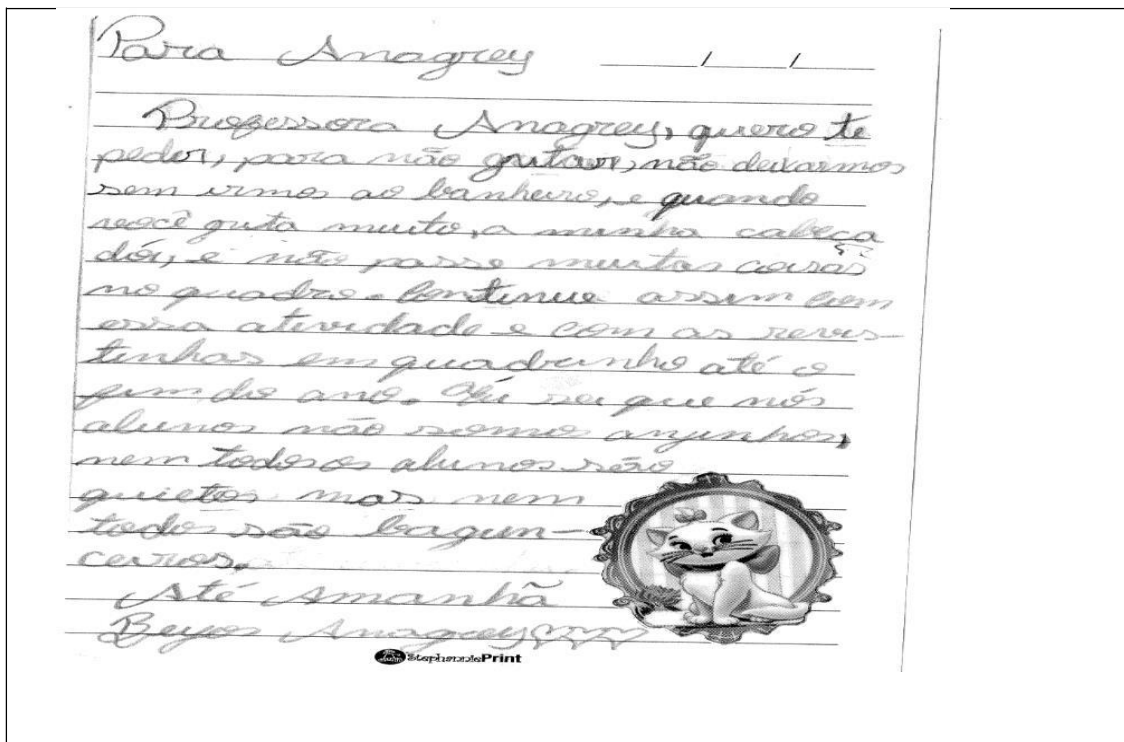 Para Anagrey / /
Professora Anagrey, quero te
pedir, para não gritar, não deixarmos
sem irmos ao banheiro, e quando
você grita muito, a minha cabeça
dói, e não passe muitas coisas
no quadro. Continue assim com
essa atividade e com as revis-
tinhas em quadrinho até o
fim do ano. Eu sei que nós
alunos não somo anjinhos,
nem todos os alunos são
quietos mas nem
todos são bagun-
ceiros.
Até Amanhã
Beijos Anagrey
StephanniePrint